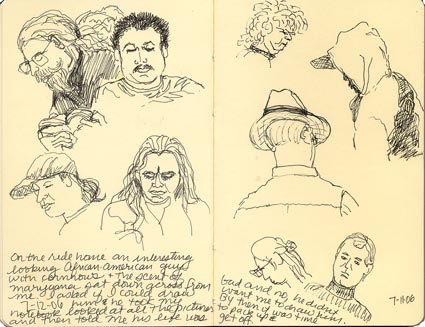 On the ride home an interesting
looking African-american guy
with cornrows + the scent of
sat down across from
me I asked if I could draw
7-12-06 him & he took my
notebook looked at all the pictures
and then told me his life was
bad and no, he didnt
want me to draw him.
By then it was time
to pack up &
get off.
7-11-06